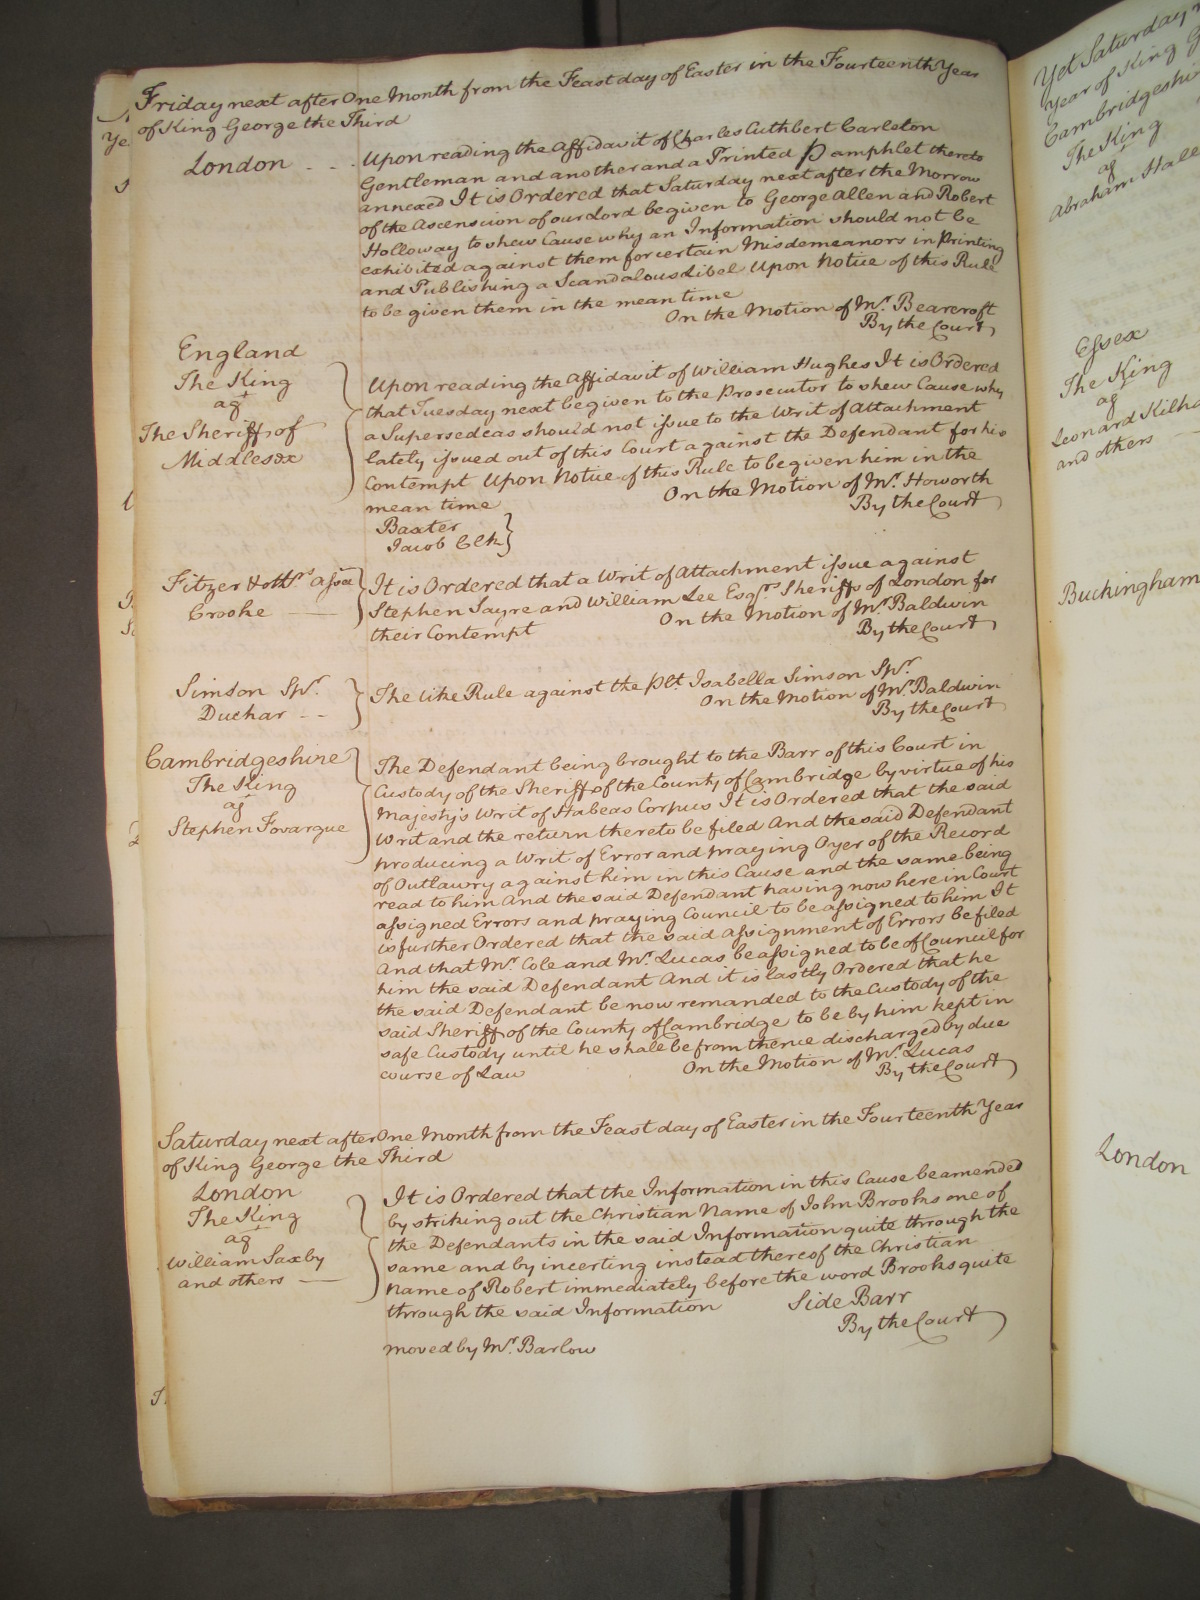 Friday next after One Month from the Feast day of Easter in the Fourteenth Year
of King George the Third
London - - - Upon reading the Affidavit of Charles Cuthbert Carleton
Gentleman and another and a Printed Pamphlet thereto
annexed It is Ordered that Saturday next after the Morrow
of the Ascension of our Lord be given to George Allen and Robert
Holloway to shew Cause why an Information should not be
exhibited against them for certain Misdemeanors in Printing
and Publishing a Scandalous Libel Upon Notice of this Rule
to be given them in the mean time
On the Motion of Mr. Bearcroft
By the Court
England
The King
agt
The Sheriff of
Middlesex
Upon reading the Affidavit of William Hughes It is Ordered
that Tuesday next be given to the Prosecutor to shew Cause why
a Supersedeas should not issue to the Writ of Attachment
lately issued out of this Court against the Defendant for his
Contempt Upon Notice of this Rule to be given him in the
mean time
On the Motion of Mr. Howorth
By the Court
Baxter
Jacob Clk
Fitzer & othrs. assees
Crooke
It is Ordered that a Writ of Attachment issue against
Stephen Sayre and William Lee Esqrs. Sheriffs of London for
their Contempt
On the Motion of Mr. Baldwin
By the Court
Simson Spr.
Duchar - -
The like Rule against the Plt. Isabella Simson Spr.
On the Motion of Mr. Baldwin
By the Court
Cambridgeshire
The King
agt
Stephen Fovargue
The Defendant being brought to the Barr of this Court in
Custody of the Sheriff of the County of Cambridge by virtue of his
Majesty's Writ of Habeas Corpus It is Ordered that the said
Writ and the return thereto be filed And the said Defendant
producing a Writ of Error and praying Oyer of the Record
of Outlawry against him in this Cause and the same being
read to him And the said Defendant having now here in Court
assigned Errors and praying Council to be assigned to him It
is further Ordered that the said Assignment of Errors be filed
And that Mr. Cole and Mr. Lucas be assigned to be of Council for
him the said Defendant And it is lastly Ordered that he
the said Defendant be now remanded to the Custody of the
said Sheriff of the County of Cambridge to be by him kept in
safe Custody until he shall be from thence discharged by due
course of Law
On the Motion of Mr. Lucas
By the Court
Saturday next after One Month from the Feast day of Easter in the Fourteenth Year
of King George the Third
London
The King
agt
William Saxby
and others
It is Ordered that the Information in this Cause be amended
by striking out the Christian Name of John Brooks one of
the Defendants in the said Information quite through the
same and by incerting instead thereof the Christian
Name of Robert immediately before the word Brooks quite
through the said Information
Side Barr
By the Court
moved by Mr. Barlow
Yet Saturday
Year of King
Cambridgeshi
The King
agt
Abraham Hale
Essex
The King
agt
Leonard Kilha
and others
Buckingham
London